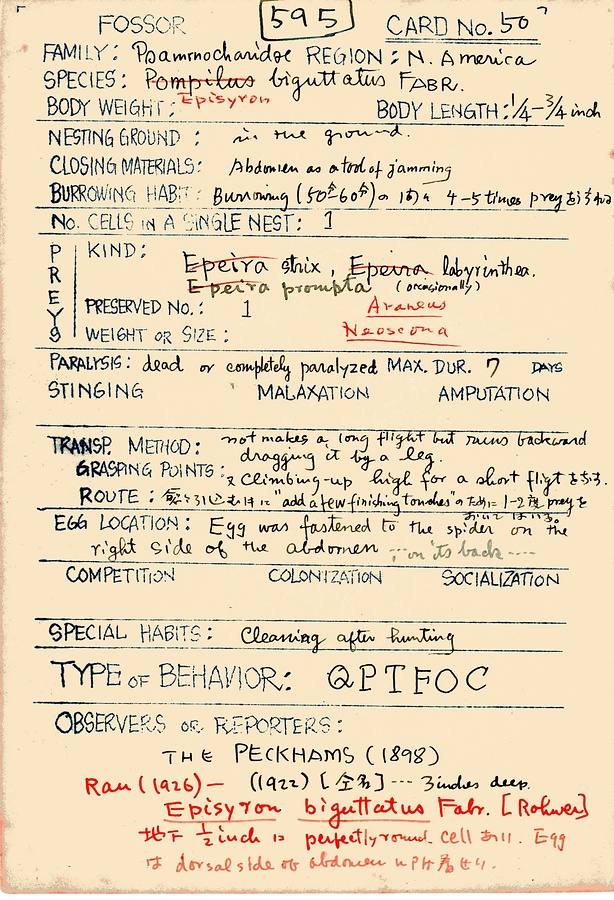 595
FOSSOR CARD No. 50
FAMILY: Psammocharidae REGION: N. America
SPECIES: Pompilus biguttatus FABR.
Episyron
BODY WEIGHT: BODY LENGTH: 1/4-3/4 inch
NESTING GROUND: in the ground.
CLOSING MATERIALS: Abdomen as a tool of jamming
BURROWING HABIT: Burrowing (50分-60分) の間に 4-5 times preyを
No. CELLS IN A SINGLE NEST: 1
PREYS
KIND:
Epeira strix, Epeira labyrinthea.
Epeira prompta (occasionally)
PRESERVED No.: 1 Araneus
WEIGHT OR SIZE: Neoscona
PARALYSIS: dead or completely paralyzed MAX. DUR. 7 DAYS
STINGING MALAXATION AMPUTATION
TRANSP. METHOD: not makes a long flight but runs backward
dragging it by a leg.
GRASPING POINTS: climbing-up high for a short fligt をする.
ROUTE: "add a few finishing touches" のために 1-2度 preyを
おいて はいる。
EGG LOCATION: Egg was fastened to the spider on the
right side of the abdomen ... on its back ----
COMPETITION COLONIZATION SOCIALIZATION
SPECIAL HABITS: Cleaning after hunting
TYPE OF BEHAVIOR: QPTFOC
OBSERVERS OR REPORTERS:
THE PECKHAMS (1898)
Rau (1926)— (1922) [全名] --- 3 inches deep.
Episyron biguttatus Fabr. [Rohwer]
地下 1/2 inch に perfectly round cell あり. Egg
は dorsal side of abdomen に